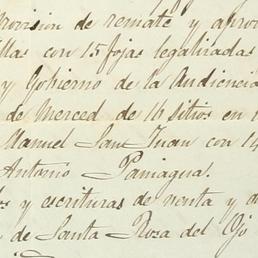 rovision de remate y apro
llas con 15 fojas legalizadas
y Gobierno de la Audiencia
de Merced de 16 sitios en
Manuel San Juan con 14
Antonio Paniagua.
os y escrituras de venta y
de Santa Rosa del Ojo